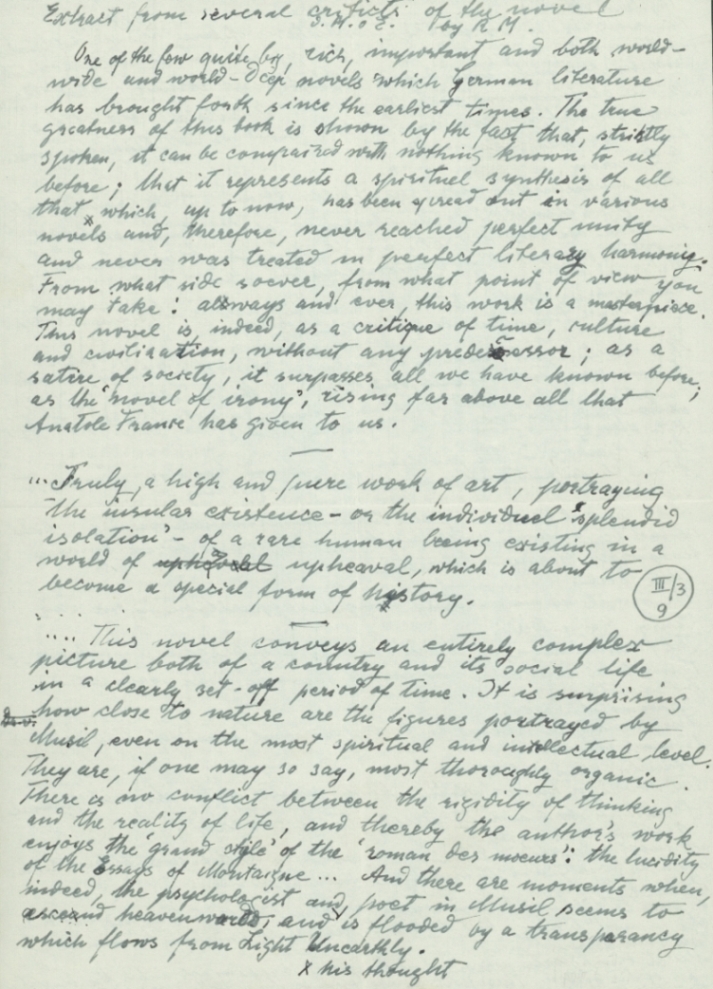 Extract from several critics of the novel
by R M.
One of the few quite big, rich, important and both world-
wide and world-deep novels which German literature
has brought forth since the earliest times. The true
greatness of this book is shown by the fact that, strictly
spoken, it can be compraired with nothing known to us
before; that it represents a spirituel synthesis of all
that which, up to now, has been spread out in various
novels and, therefore, never reached perfect unity
and never was treated in perfect literary harmony.
From what side soever, from what point of view you
may take: always and ever, this work is a masterpiece.
This novel is, indeed, as a critique of time, culture
and civilization, without any predecessor; as a
satire of society, it surpasses all we have known before;
as the "novel of irony", rising far above all that
Anatole France has given to us.
"...Truly, a high and pure work of art, portraying
the insular existence - or the individuel "splendid
isolation" - of a rare human being existing in a
world of upheaval, which is about to
become a special form of history.
III/3
9
".... This novel conveys an entirely complex
picture both of a country and its social life
in a clearly set-off period of time. It is surprising
how close to nature are the figures portrayed by
Musil, even on the most spiritual and intellectual level.
They are, if one may so say, most thoroughly organic.
There is no conflict between the rigidity of thinking
and the reality of life, and thereby the author's work
enjoys the 'grand style' of the 'roman des moeurs': the lucidity
of the Essays of Montaigne... And there are moments when,
indeed, the psychologist and poet in Musil seems to
ascend heavenwards, and is flooded by a transparancy
which flows from Light Unearthly.
x his thought